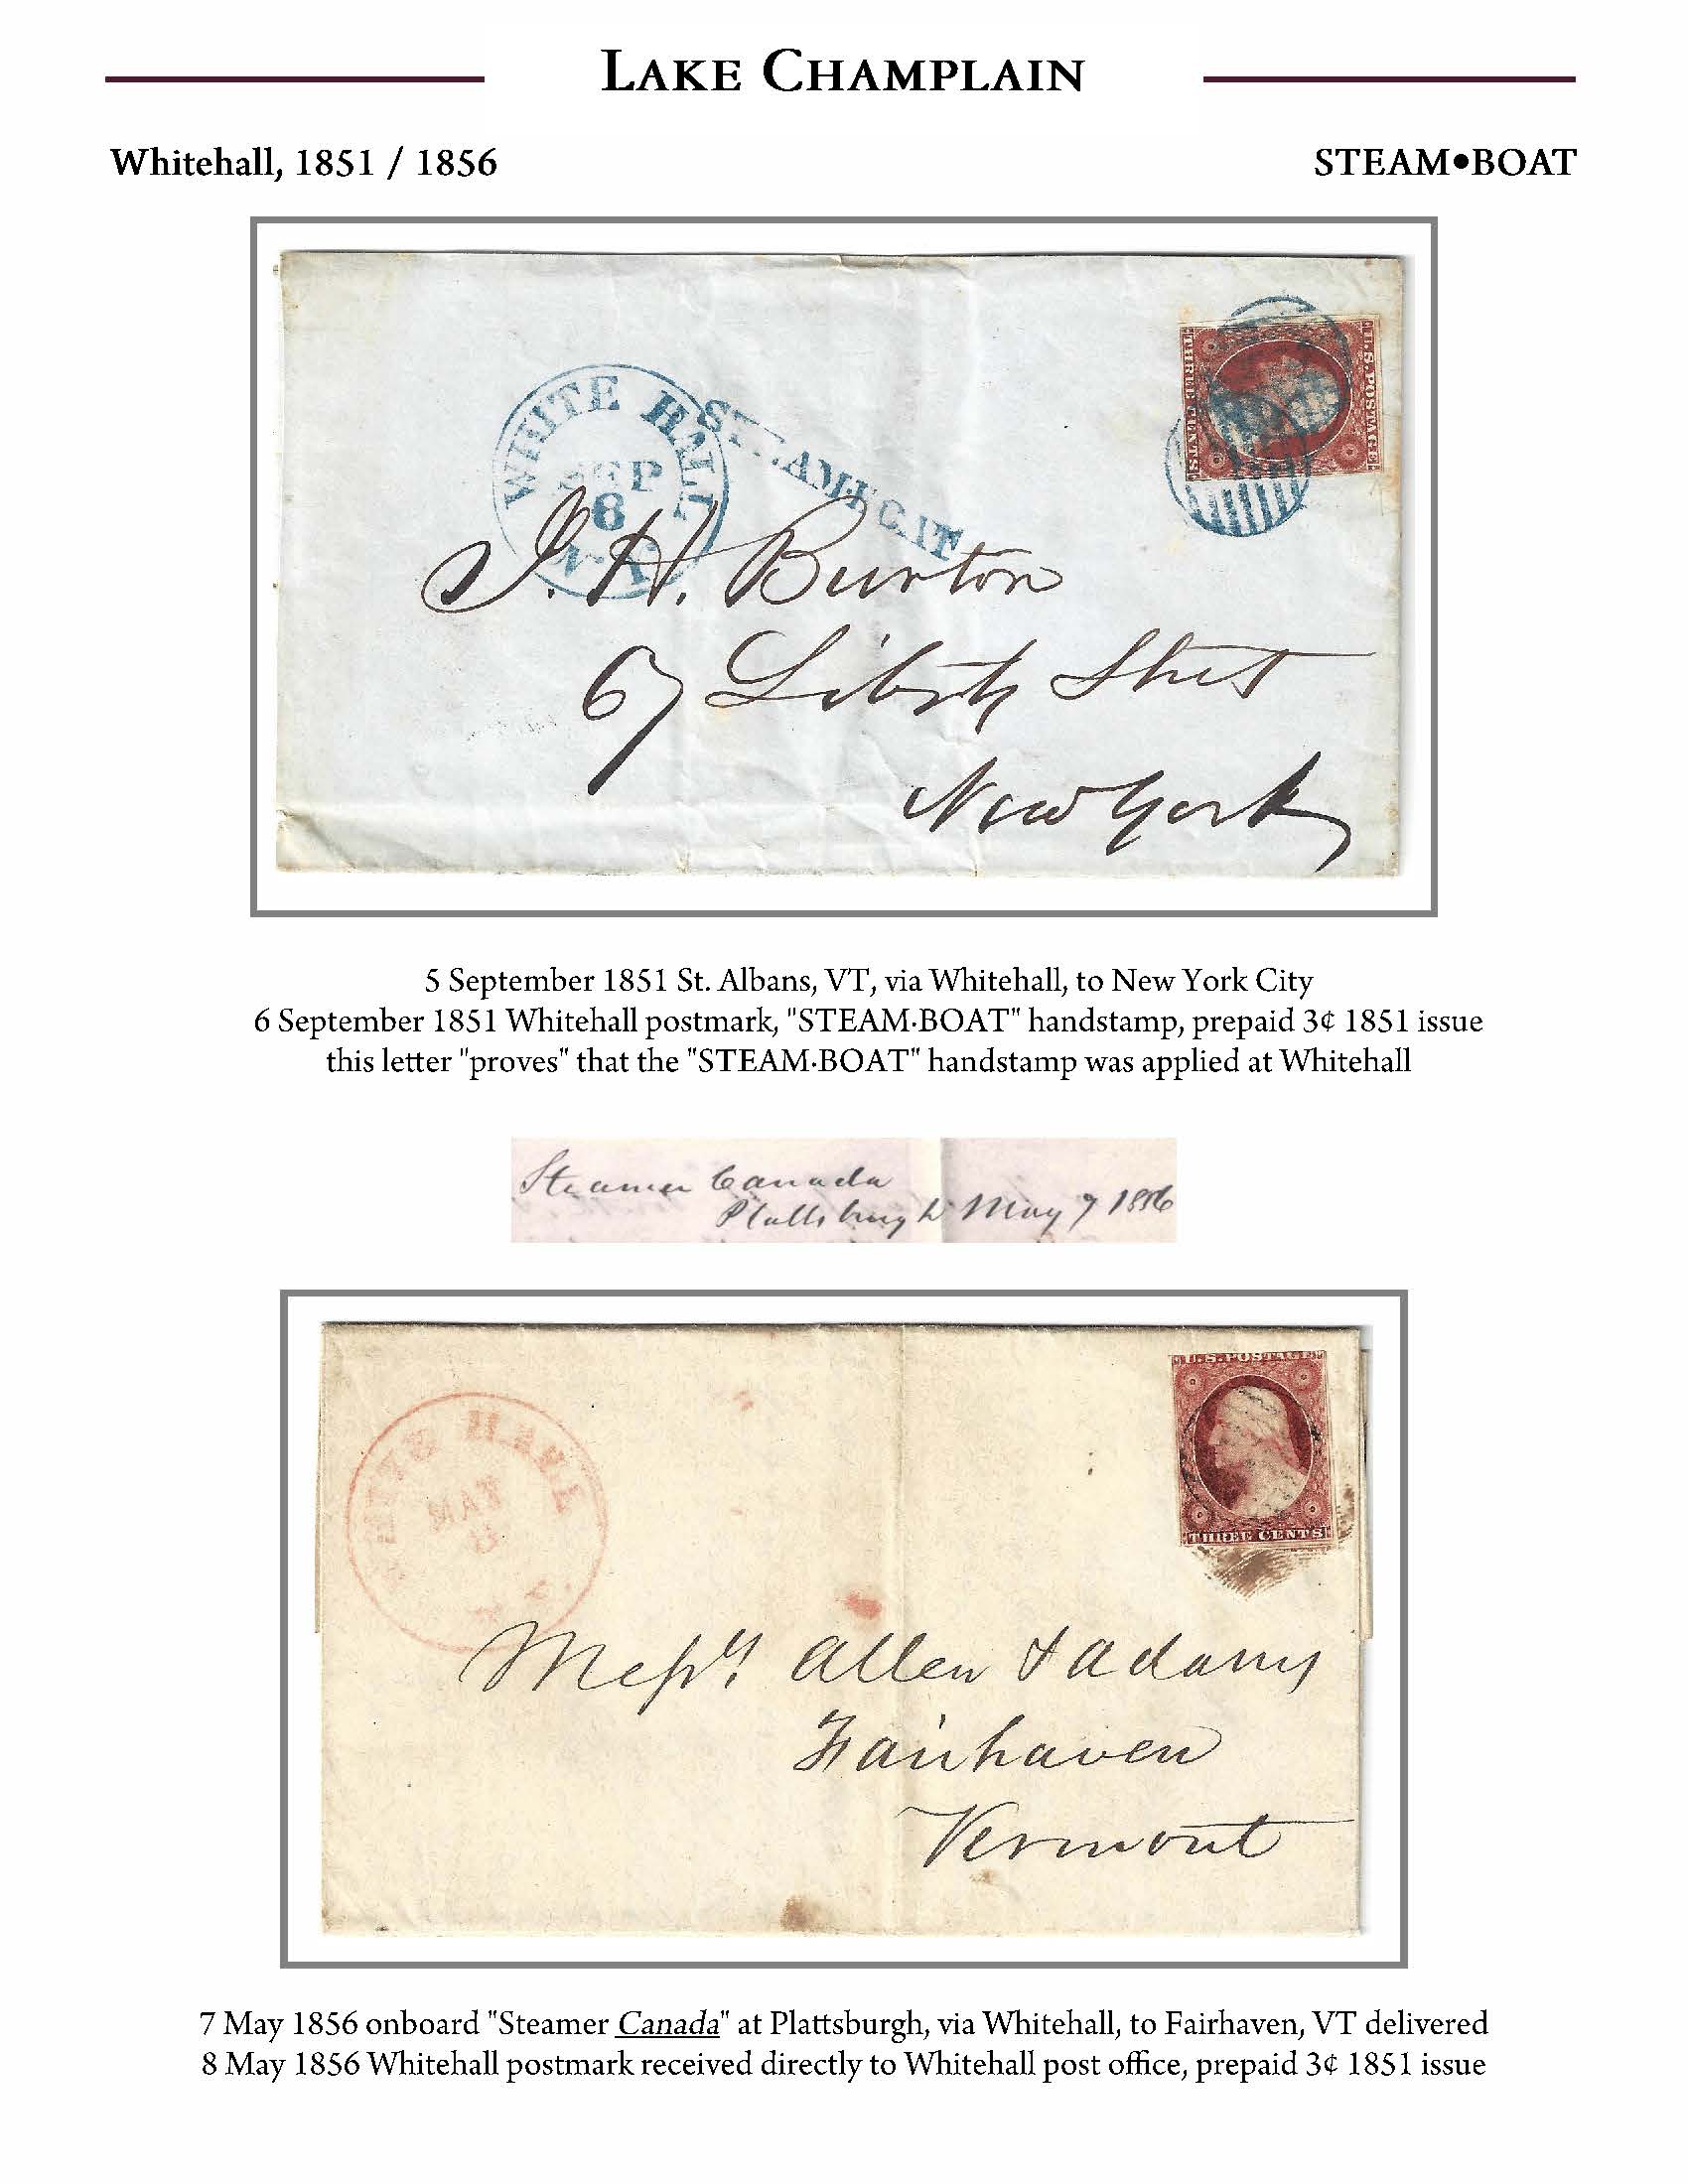 LAKE CHAMPLAIN
Whitehall, 1851 / 1856
STEAM•BOAT
U.S. POSTAGE
THREE CENTS
WHITE HALL
SEP
6
N.Y.
STEAM·BOAT
J. H. Burton
67 Liberty Street
New York
5 September 1851 St. Albans, VT, via Whitehall, to New York City
6 September 1851 Whitehall postmark, "STEAM·BOAT" handstamp, prepaid 3¢ 1851 issue
this letter "proves" that the "STEAM·BOAT" handstamp was applied at Whitehall
Steamer Canada
Plattsburgh May 7 1856
U.S. POSTAGE
THREE CENTS
WHITE HALL
MAY
8
N.Y.
Messrs Allen & Adams
Fairhaven
Vermont
7 May 1856 onboard "Steamer Canada" at Plattsburgh, via Whitehall, to Fairhaven, VT delivered
8 May 1856 Whitehall postmark received directly to Whitehall post office, prepaid 3¢ 1851 issue